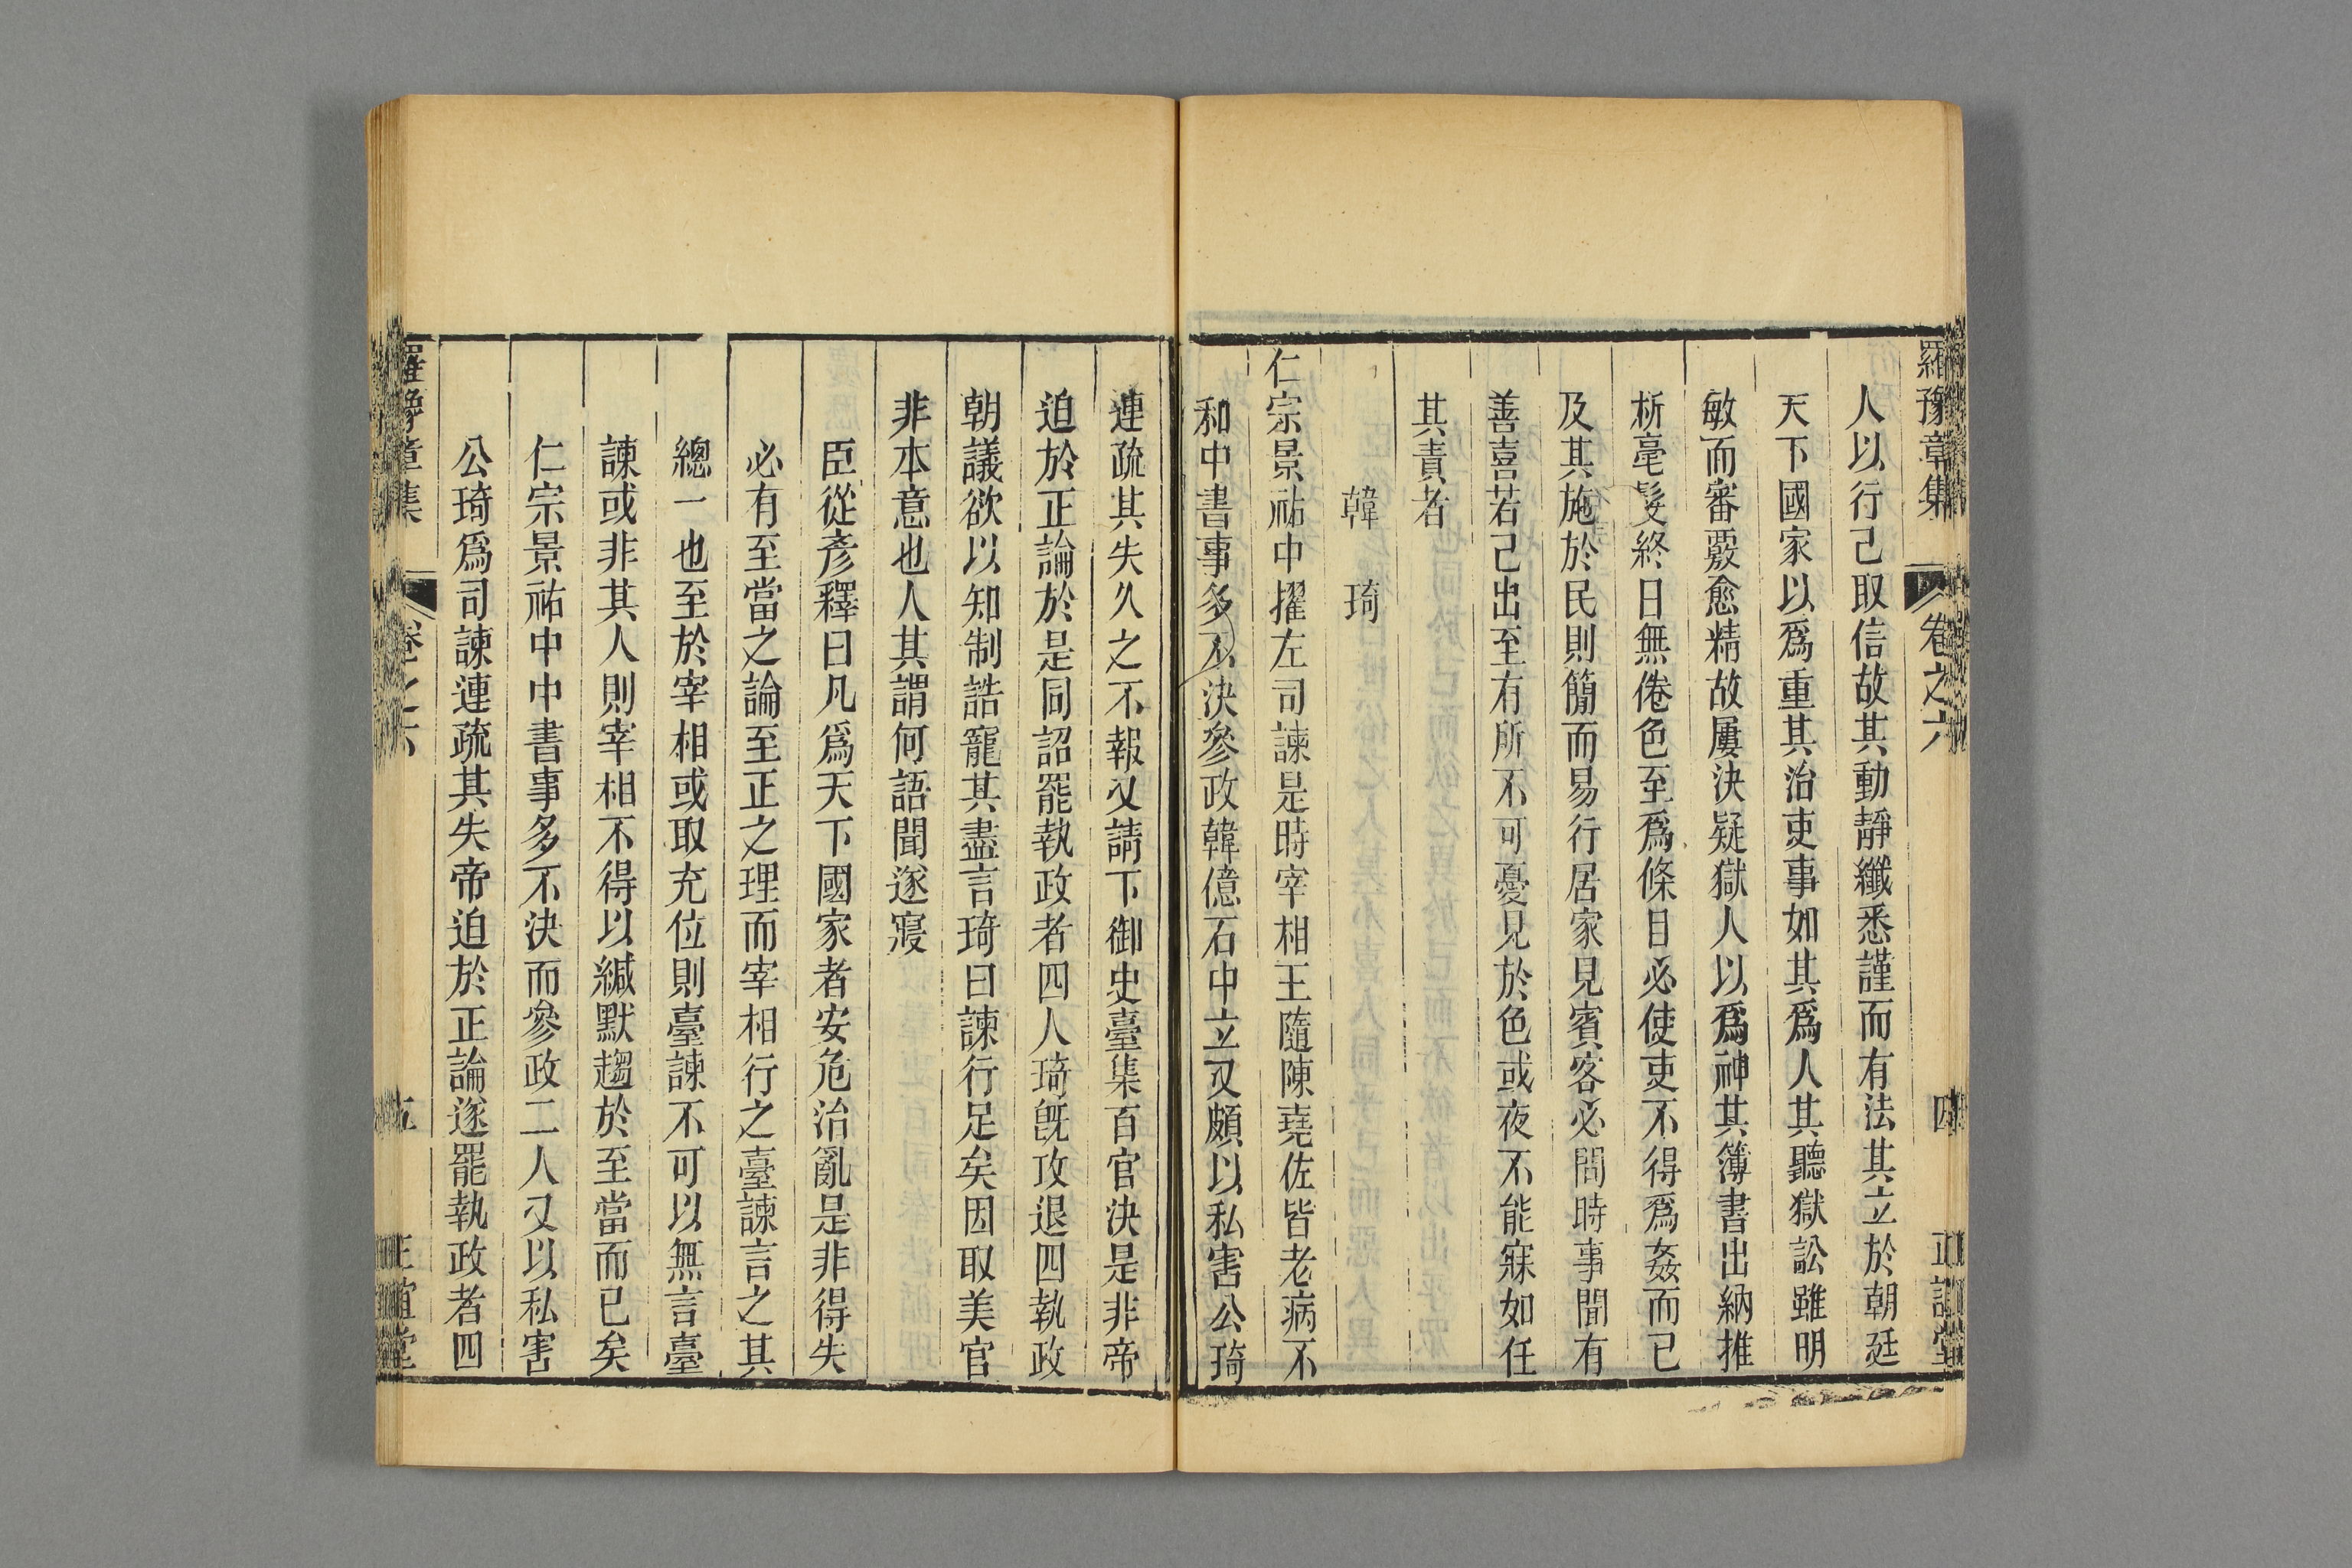 羅豫章集 卷之六 四 正誼堂
人以行己取信故其動靜纖悉謹而有法其立於朝廷
天下國家以爲重其治吏事如其爲人其聽獄訟雖明
敏而審覈愈精故屢決疑獄人以爲神其簿書出納推
析毫髮終日無倦色至爲條目必使吏不得爲姦而已
及其施於民則簡而易行居家見賓客必問時事聞有
善喜若己出至有所不可憂見於色或夜不能寐如任
其責者
韓 琦
仁宗景祐中擢左司諫是時宰相王隨陳堯佐皆老病不
和中書事多不決參政韓億石中立又頗以私害公琦
連疏其失久之不報又請下御史臺集百官決是非帝
迫於正論於是同詔罷執政者四人琦旣攻退四執政
朝議欲以知制誥寵其盡言琦曰諫行足矣因取美官
非本意也人其謂何語聞遂寢
臣從彥釋曰凡爲天下國家者安危治亂是非得失
必有至當之論至正之理而宰相行之臺諫言之其
總一也至於宰相或取充位則臺諫不可以無言臺
諫或非其人則宰相不得以緘默趨於至當而已矣
仁宗景祐中中書事多不決而參政二人又以私害
公琦爲司諫連疏其失帝迫於正論遂罷執政者四
羅豫章集 卷之六 五 正誼堂